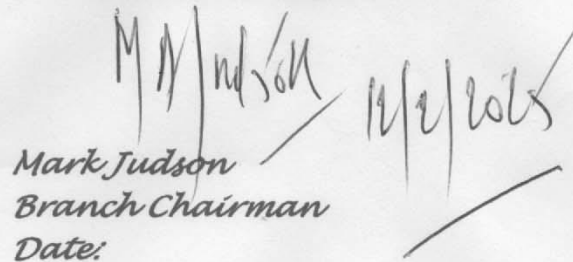 M A Judson 12/2/2025
Mark Judson
Branch Chairman
Date: